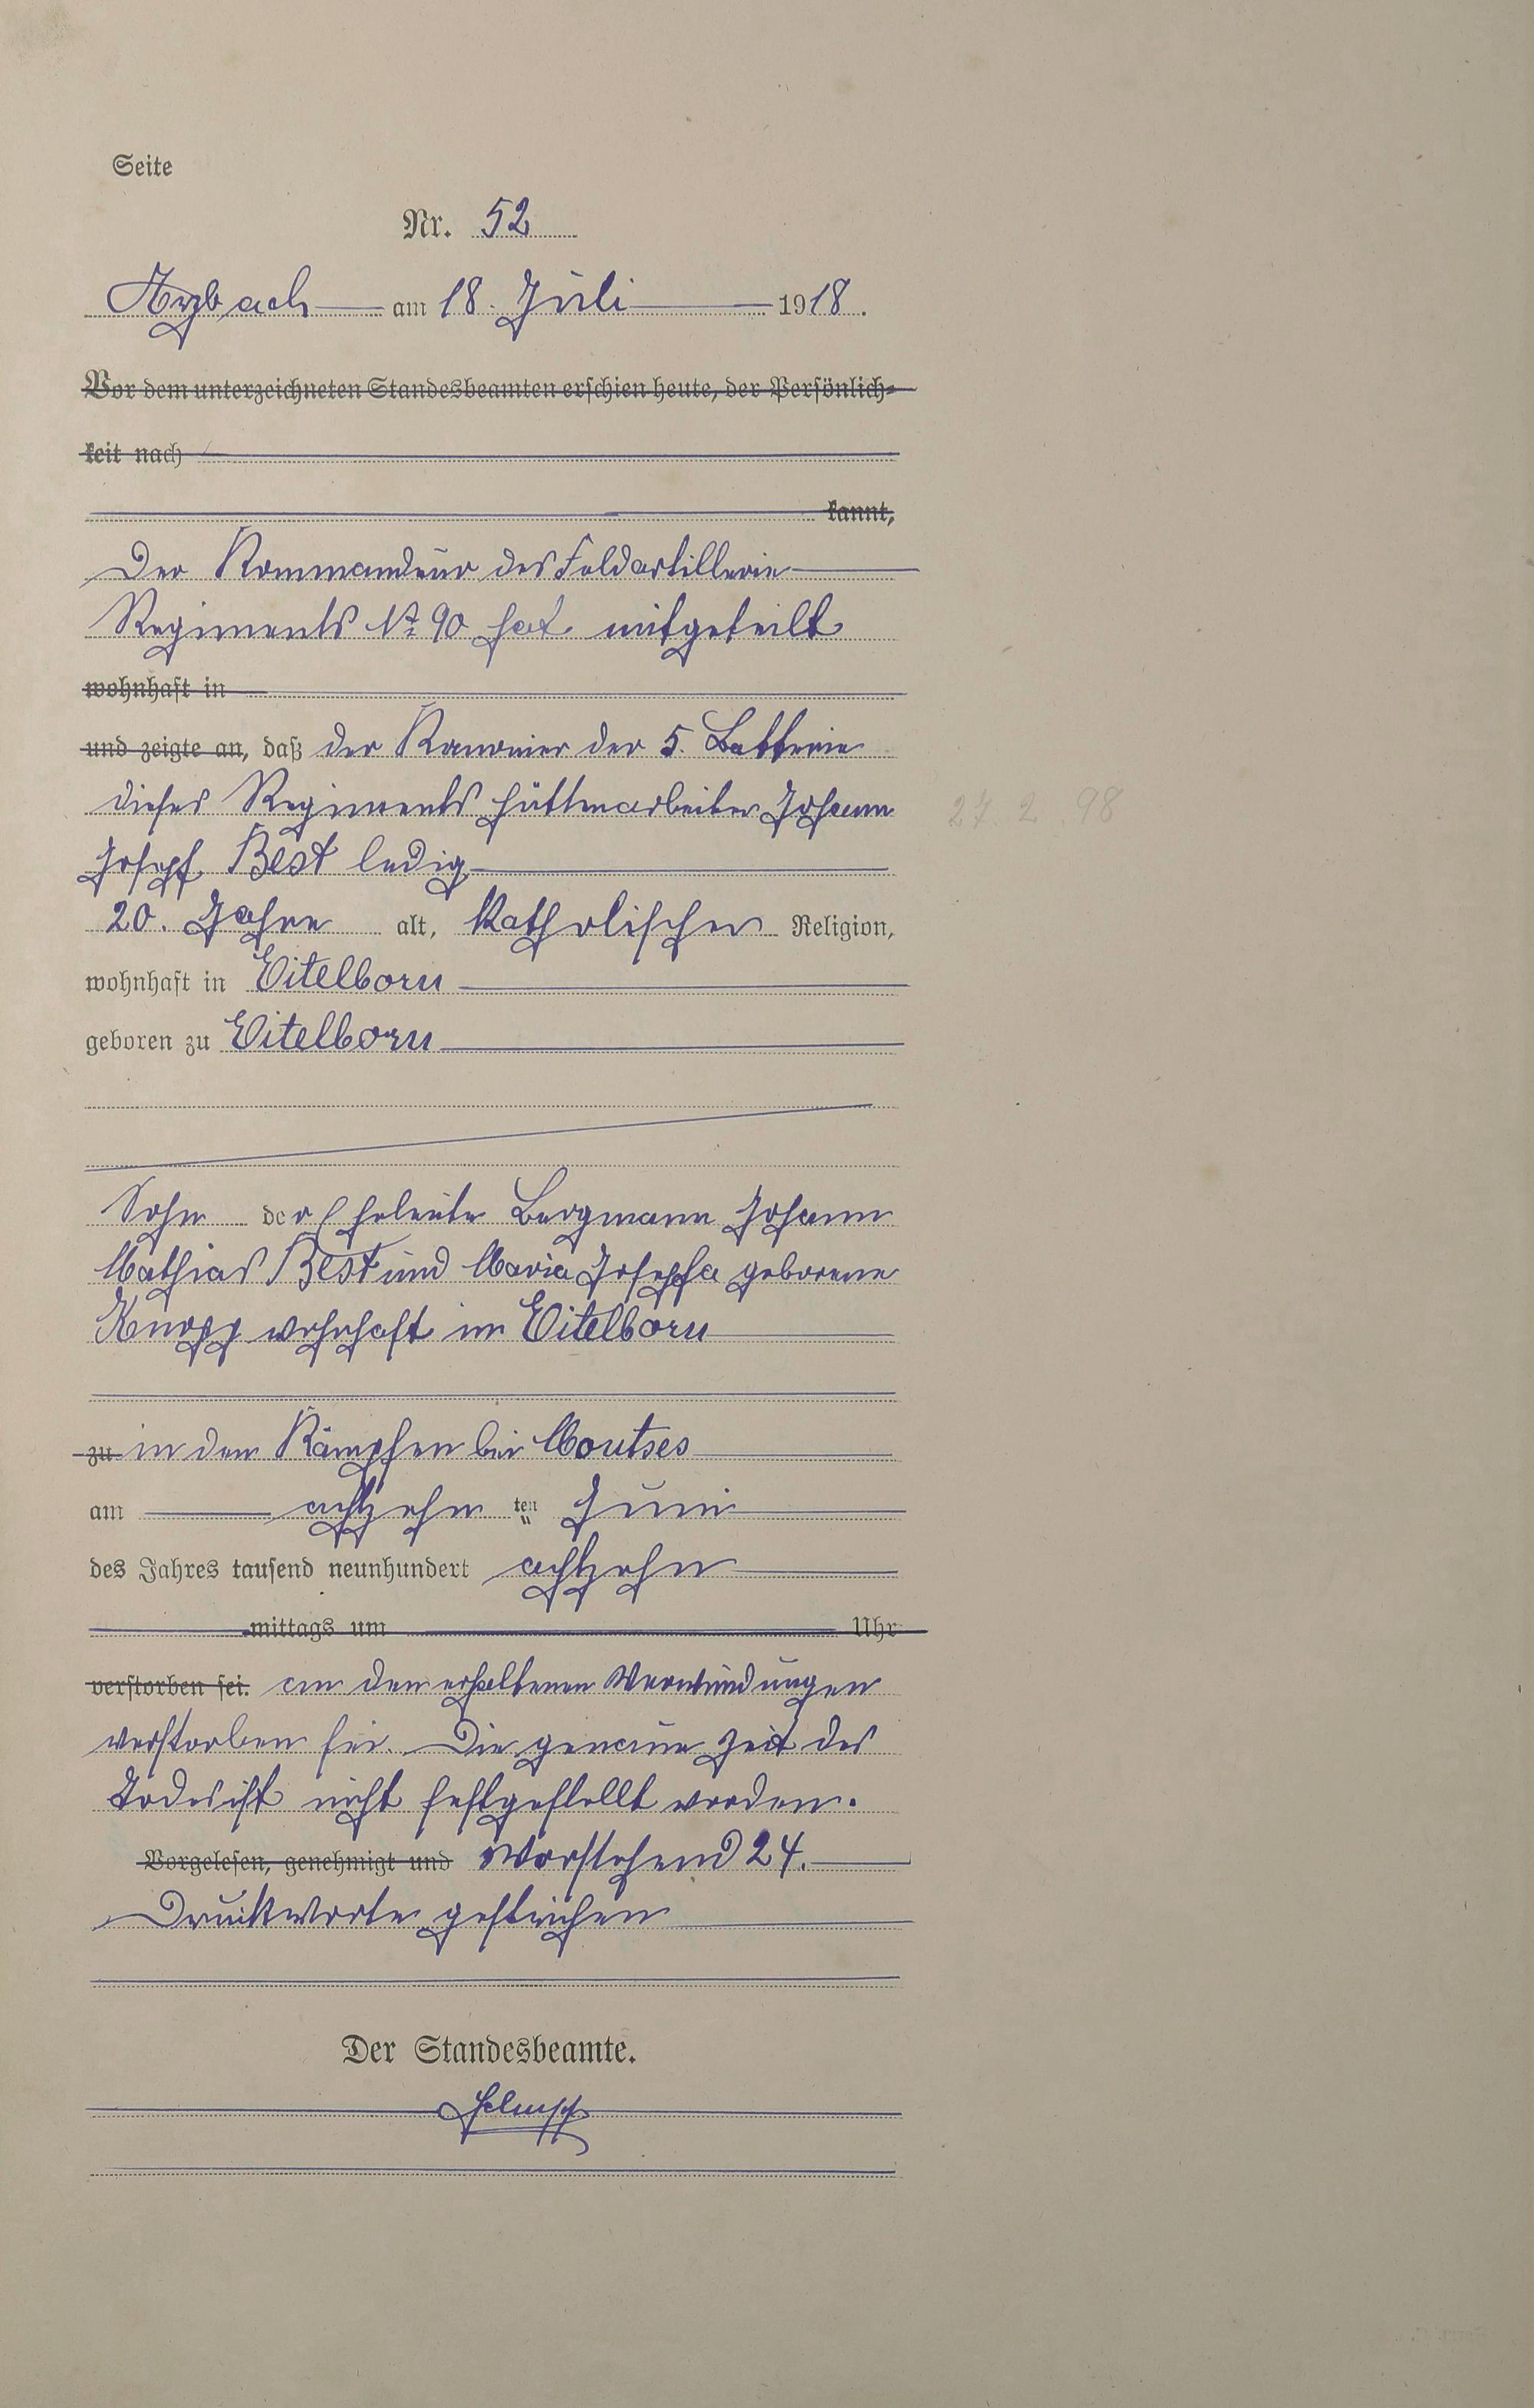 Seite
Nr. 52
Arzbach am 18. Juli 1918.
Vor dem unterzeichneten Standesbeamten erschien heute, der Persönlich-
keit nach
kannt,
Der Kommandeur des Feldartillerie
Regiments No 90 hat mitgeteilt
wohnhaft in
und zeigte an, daß der Kanonier der 5. Batterie
dieses Regiments Hüttenarbeiter Johann
27. 2. 98
Josef Best ledig
20. Jahre alt, katholischer Religion,
wohnhaft in Eitelborn
geboren zu Eitelborn
Sohn der Eheleute Bergmann Johann
Mathias Best und Maria Josepha geborene
Knopp wohnhaft in Eitelborn
zu in den Kämpfen bei Moutses
am achtzehn ten Juni
des Jahres tausend neunhundert achtzehn
mittags um Uhr
verstorben sei. an den erhaltenen Verwundungen
verstorben sei. Die genaue Zeit des
Todes ist nicht festgestellt worden.
Vorgelesen, genehmigt und Vorstehend 24.
Druckworte gestrichen
Der Standesbeamte.